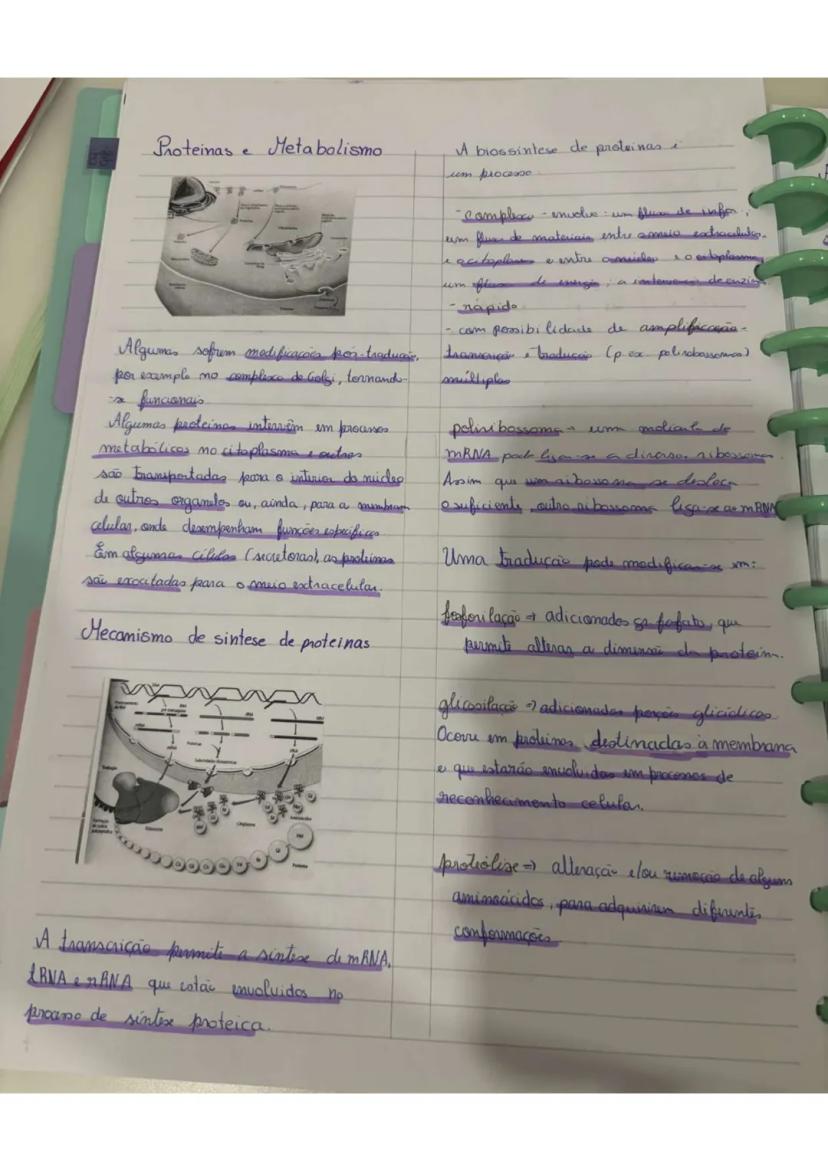 Proteinas e Metabolismo
Algumas sofrem modificações pós-tradução,
por exemplo no complexo de Golgi, tornando-
-se funcionais
Algumas proteínas intervêm em processos
metabólicos no citoplasma e outras
são transportadas para o interior do núcleo
de outros organelos ou, ainda, para a membrana
celular, onde desempenham funções específicas
Em algumas células (secretoras), as proteínas
são exocitadas para o meio extracelular.
Mecanismo de sintese de proteinas
A transcrição permite a síntese de mRNA,
tRNA e rRNA que estão envolvidos no
processo de síntese proteica.
A biossíntese de proteínas é
um processo
- complexo - envolve um fluxo de info,
um fluxo de materiais entre o meio extracelular
e citoplasma e entre o núcleo e o citoplasma,
um fluxo de energia, a intervenção de enzimas
- rápido
- com possibilidade de amplificação -
transcrição e tradução (p. ex polirribossomas)
múltiplas
polirribossoma → uma molécula de
mRNA pode ligar-se a diversos ribossomas.
Assim que um ribossoma se desloca
o suficiente, outro ribossoma liga-se ao mRNA
Uma tradução pode modificar-se em:
fosforilação → adicionados fosfato, que
permite alterar a dimensão da proteína.
glicosilação → adicionadas porções glicídicas
Ocorre em proteínas destinadas à membrana
e que estarão envolvidas em processos de
reconhecimento celular.
proteólise ⇒ alteração e/ou remoção de alguns
aminoácidos, para adquirirem diferentes
conformações